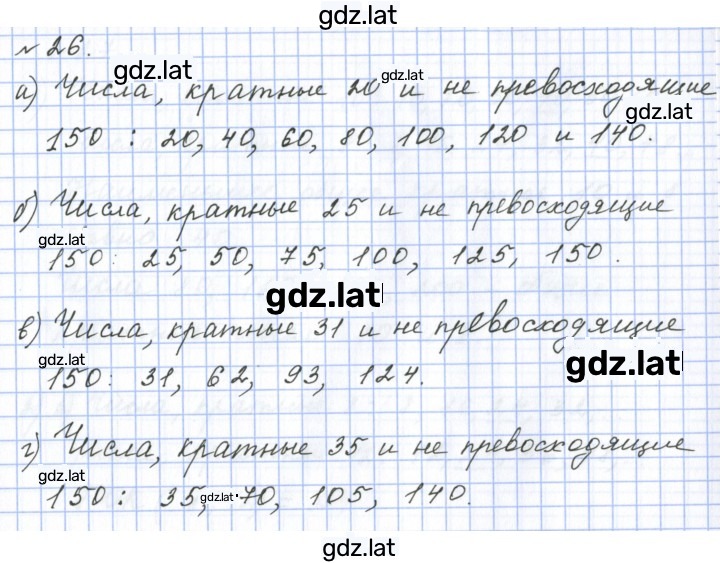 gdz.lat
№ 26.
gdz.lat
gdz.lat
а) Числа, кратные 20 и не превосходящие
gdz.lat
150 : 20, 40, 60, 80, 100, 120 и 140.
б) Числа, кратные 25 и не превосходящие
gdz.lat
150: 25, 50, 75, 100, 125, 150.
gdz.lat
в) Числа, кратные 31 и не превосходящие
gdz.lat
gdz.lat
150: 31, 62, 93, 124.
г) Числа, кратные 35 и не превосходящие
gdz.lat
150 : 35, 70, 105, 140.
gdz.lat
gdz.lat